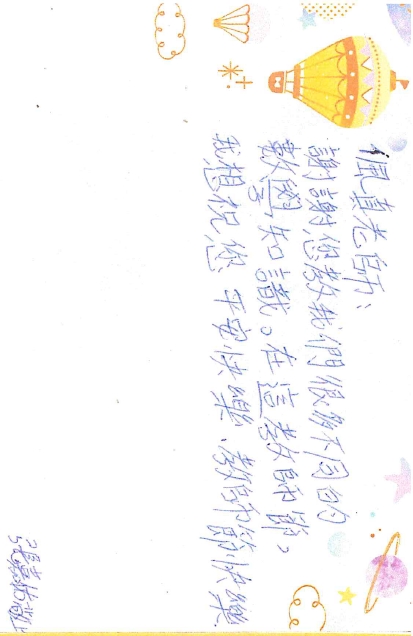 佩真老師：
謝謝您教我們很多不同的
數學知識。在這教師節，
我想祝您 平安快樂、教師節快樂